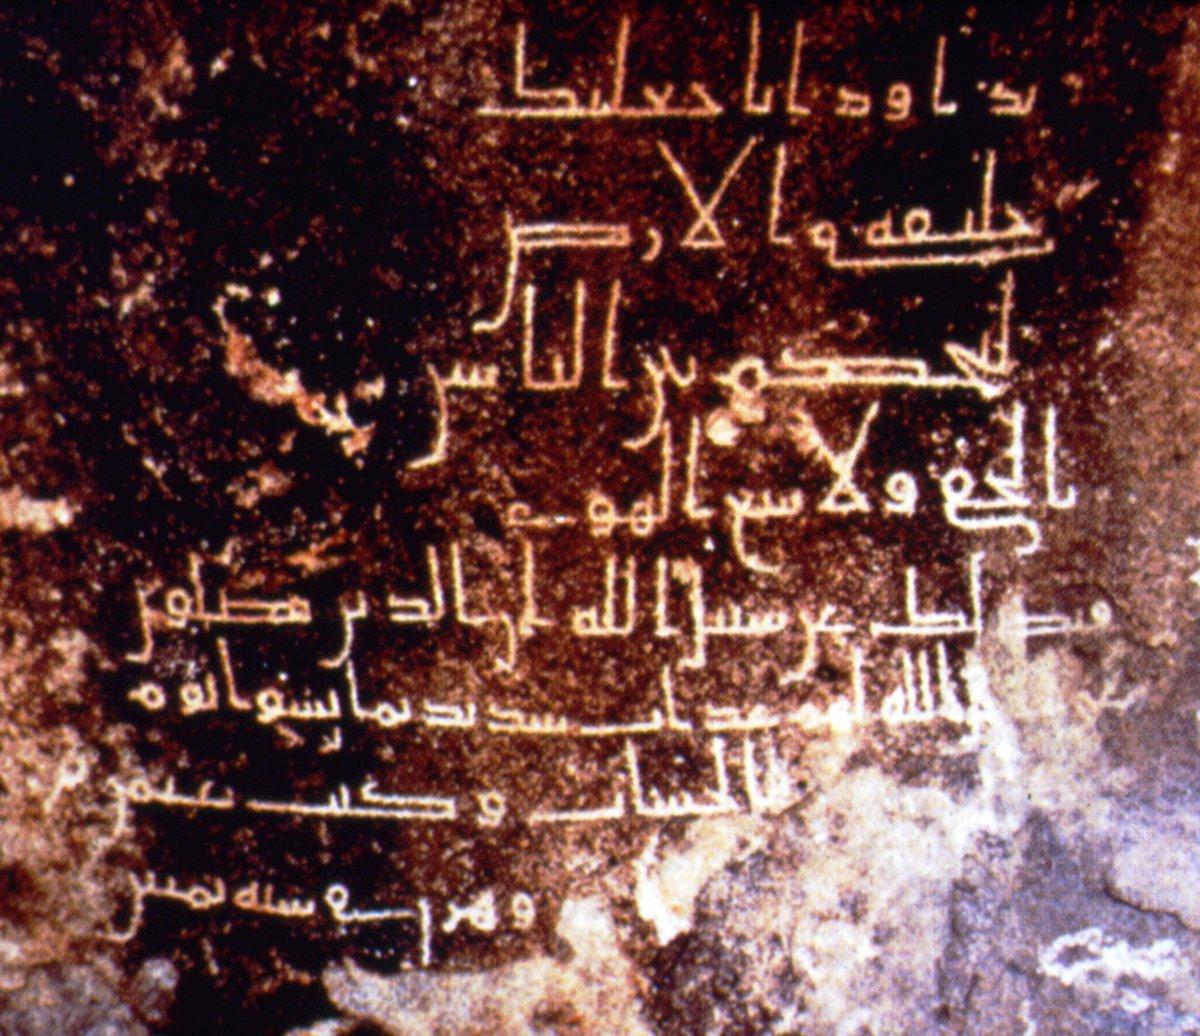 يداود انا جعلنك
خليفه في الارض
لتحكم بين الناس
بالحق ولا تتبع الهوى
فيضلك عن سبيل الله ان الذين يضلون
الله لهم عذاب شديد بما نسوا يوم
الحساب وكتب عثمن
وهرن في سنه ثمنين